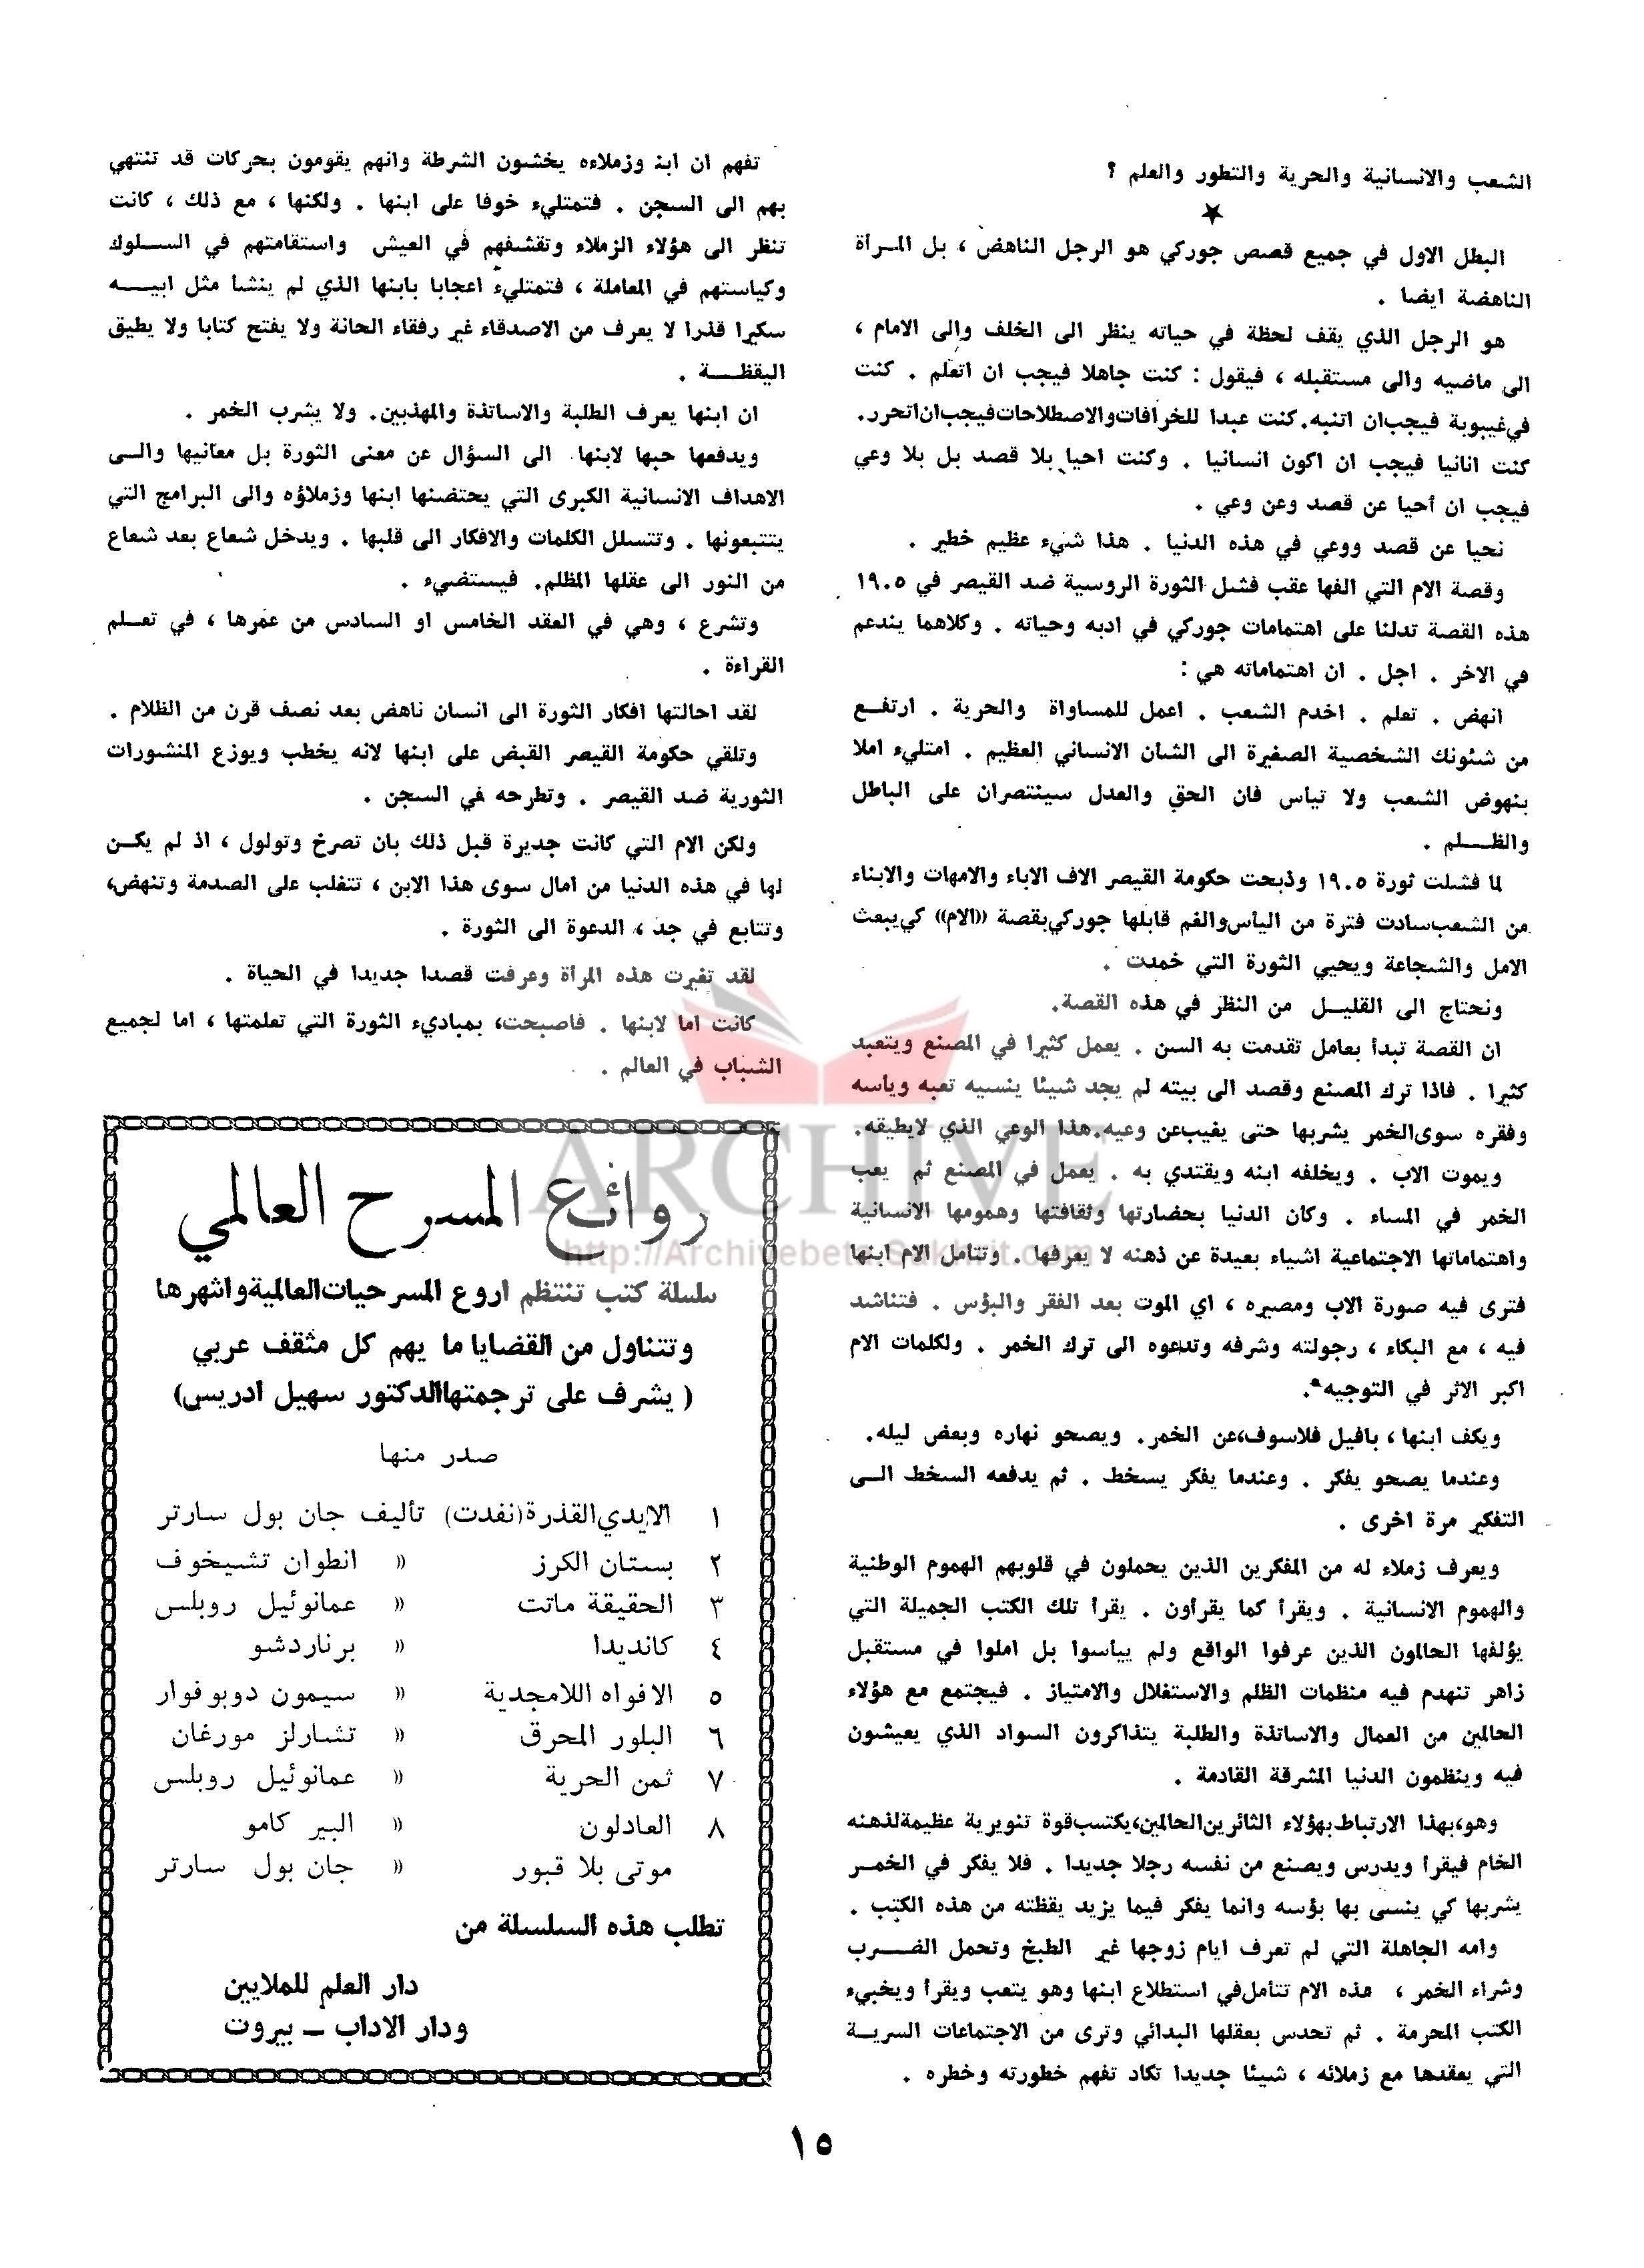 الشعب والانسانية والحرية والتطور والعلم ؟
★
البطل الاول في جميع قصص جوركي هو الرجل الناهض ، بل المـرأة
الناهضة ايضا .
هو الرجل الذي يقف لحظة في حياته ينظر الى الخلف والى الامام ،
الى ماضيه والى مستقبله ، فيقول : كنت جاهلا فيجب ان اتعلم . كنت
في غيبوبة فيجب ان اتنبه. كنت عبدا للخرافات والاصطلاحات فيجب ان اتحرر.
كنت انانيا فيجب ان اكون انسانيا . وكنت احيا بلا قصد بل بلا وعي
فيجب ان أحيا عن قصد وعن وعي .
نحيا عن قصد ووعي في هذه الدنيا . هذا شيء عظيم خطير .
وقصة الام التي الفها عقب فشل الثورة الروسية ضد القيصر في ١٩٠٥
هذه القصة تدلنا على اهتمامات جوركي في ادبه وحياته . وكلاهما يندعم
في الاخر . اجل . ان اهتماماته هي :
انهض . تعلم . اخدم الشعب . اعمل للمساواة والحرية . ارتفـع
من شئونك الشخصية الصغيرة الى الشان الانساني العظيم . امتليء املا
بنهوض الشعب ولا تيأس فان الحق والعدل سينتصران على الباطل
والظـــلم .
لما فشلت ثورة ١٩٠٥ وذبحت حكومة القيصر الاف الاباء والامهات والابناء
من الشعب سادت فترة من اليأس والغم قابلها جوركي بقصة ((الام)) كي يبعث
الامل والشجاعة ويحيي الثورة التي خمدت .
ونحتاج الى القليـل من النظر في هذه القصة.
ان القصة تبدأ بعامل تقدمت به السن . يعمل كثيرا في المصنع ويتعبد
كثيرا . فاذا ترك المصنع وقصد الى بيته لم يجد شيئا ينسيه تعبه وياسه
وفقره سوى الخمر يشربها حتى يغيب عن وعيه. هذا الوعي الذي لا يطيقه.
ويموت الاب . ويخلفه ابنه ويقتدي به . يعمل في المصنع ثم يعب
الخمر في المساء . وكان الدنيا بحضارتها وثقافتها وهمومها الانسانية
واهتماماتها الاجتماعية اشياء بعيدة عن ذهنه لا يعرفها . وتتأمل الام ابنها
فترى فيه صورة الاب ومصيره ، اي الموت بعد الفقر والبؤس . فتناشد
فيه ، مع البكاء ، رجولته وشرفه وتدعوه الى ترك الخمر . ولكلمات الام
اكبر الاثر في التوجيه.
ويكف ابنها ، بافيل فلاسوف، عن الخمر. ويصحو نهاره وبعض ليله.
وعندما يصحو يفكر . وعندما يفكر يسخط . ثم يدفعه السخط الـى
التفكير مرة اخرى .
ويعرف زملاء له من المفكرين الذين يحملون في قلوبهم الهموم الوطنية
والهموم الانسانية . ويقرأ كما يقرأون . يقرأ تلك الكتب الجميلة التي
يؤلفها الحالمون الذين عرفوا الواقع ولم ييأسوا بل املوا في مستقبل
زاهر تنهدم فيه منظمات الظلم والاستغلال والامتياز . فيجتمع مع هؤلاء
الحالمين من العمال والاساتذة والطلبة يتذاكرون السواد الذي يعيشون
فيه وينظمون الدنيا المشرقة القادمة .
وهو، بهذا الارتباط بهؤلاء الثائرين الحالمين، يكتسب قوة تنويرية عظيمة لذهنه
الخام فيقرأ ويدرس ويصنع من نفسه رجلا جديدا . فلا يفكر في الخمـر
يشربها كي ينسى بها بؤسه وانما يفكر فيما يزيد يقظته من هذه الكتب .
وامه الجاهلة التي لم تعرف ايام زوجها غير الطبخ وتحمل الضـرب
وشراء الخمر ، هذه الام تتأمل في استطلاع ابنها وهو يتعب ويقرأ ويخبيء
الكتب المحرمة . ثم تحدس بعقلها البدائي وترى من الاجتماعات السريـة
التي يعقدها مع زملائه ، شيئا جديدا تكاد تفهم خطورته وخطره .
تفهم ان ابنه وزملاءه يخشون الشرطة وانهم يقومون بحركات قد تنتهي
بهم الى السجن . فتمتليء خوفا على ابنها . ولكنها ، مع ذلك ، كانت
تنظر الى هؤلاء الزملاء وتقشفهم في العيش واستقامتهم في السـلوك
وكياستهم في المعاملة ، فتمتليء اعجابا بابنها الذي لم ينشأ مثل ابيـه
سكيرا قذرا لا يعرف من الاصدقاء غير رفقاء الحانة ولا يفتح كتابا ولا يطيق
اليقظـــة .
ان ابنها يعرف الطلبة والاساتذة والمهذبين. ولا يشرب الخمر .
ويدفعها حبها لابنها الى السؤال عن معنى الثورة بل معانيها والـى
الاهداف الانسانية الكبرى التي يحتضنها ابنها وزملاؤه والى البرامج التي
يتتبعونها . وتتسلل الكلمات والافكار الى قلبها . ويدخل شعاع بعد شعاع
من النور الى عقلها المظلم. فيستضيء .
وتشرع ، وهي في العقد الخامس او السادس من عمرها ، في تعـلم
القراءة .
لقد احالتها افكار الثورة الى انسان ناهض بعد نصف قرن من الظلام .
وتلقي حكومة القيصر القبض على ابنها لانه يخطب ويوزع المنشورات
الثورية ضد القيصر . وتطرحه في السجن .
ولكن الام التي كانت جديرة قبل ذلك بان تصرخ وتولول ، اذ لم يكـن
لها في هذه الدنيا من امال سوى هذا الابن ، تتغلب على الصدمة وتنهض،
وتتابع في جد ، الدعوة الى الثورة .
لقد تغيرت هذه المرأة وعرفت قصدا جديدا في الحياة .
كانت اما لابنها . فاصبحت، بمباديء الثورة التي تعلمتها ، اما لجميع
الشباب في العالم .
روائع المسرح العالمي
سلسلة كتب تنتظم اروع المسرحيات العالمية واشهرها
وتتناول من القضايا ما يهم كل مثقف عربي
( يشرف على ترجمتها الدكتور سهيل ادريس)
صدر منها
١ الايدي القذرة (نفدت) تأليف جان بول سارتر
٢ بستان الكرز (( انطوان تشيخوف
٣ الحقيقة ماتت (( عمانوئيل روبلس
٤ كانديدا (( برناردشو
٥ الافواه اللامجدية (( سيمون دوبوفوار
٦ البلور المحرق (( تشارلز مورغان
٧ ثمن الحرية (( عمانوئيل روبلس
٨ العادلون (( البير كامو
موتى بلا قبور (( جان بول سارتر
تطلب هذه السلسلة من
دار العلم للملايين
ودار الاداب – بيروت
١٥
ARCHIVE
http://Archivebeta.Sakhrit.com